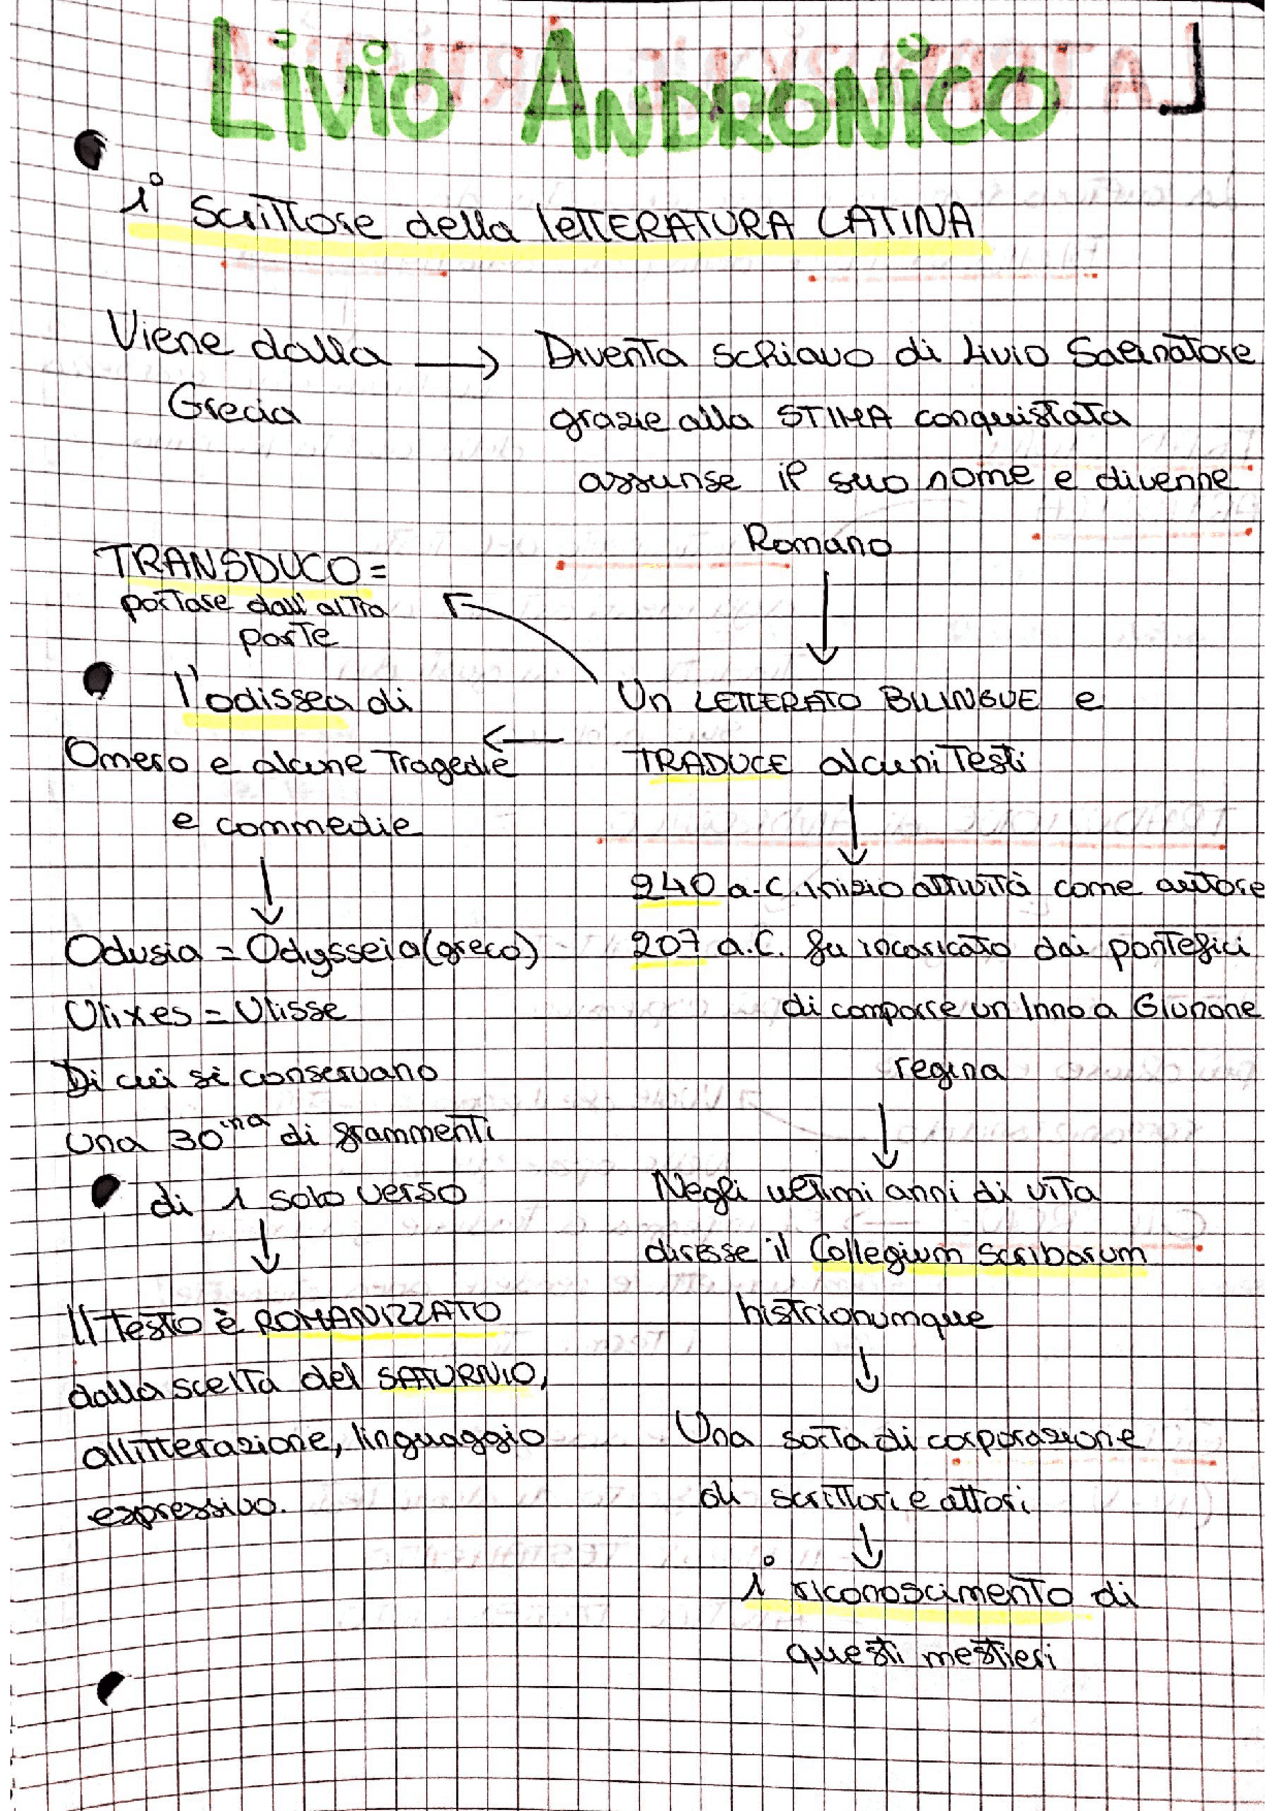 LIVIO ANDRONICO
1° scrittore della letteratura latina
Viene dalla
Grecia
→ Diventa schiavo di Livio Salinatore
grazie alla STIMA conquistata
assunse il suo nome e divenne
Romano
↓
TRANSDUCO =
portare dall'altra
parte
Un LETTERATO BILINGUE e
TRADUCE alcuni testi
←
l'odissea di
Omero e alcune tragedie
e commedie
↓
Odusia = Odysseia (greco)
Ulixes = Ulisse
Di cui si conservano
una 30ina di frammenti
di 1 solo verso
↓
Il testo è ROMANIZZATO
dalla scelta del SATURNIO,
allitterazione, linguaggio
espressivo.
↓
240 a.C. inizio attività come autore
207 a.C. fu incaricato dai pontefici
di comporre un Inno a Giunone
regina
↓
Negli ultimi anni di vita
diresse il Collegium scribarum
histrionumque
↓
Una sorta di corporazione
di scrittori e attori
↓
1° riconoscimento di
questi mestieri